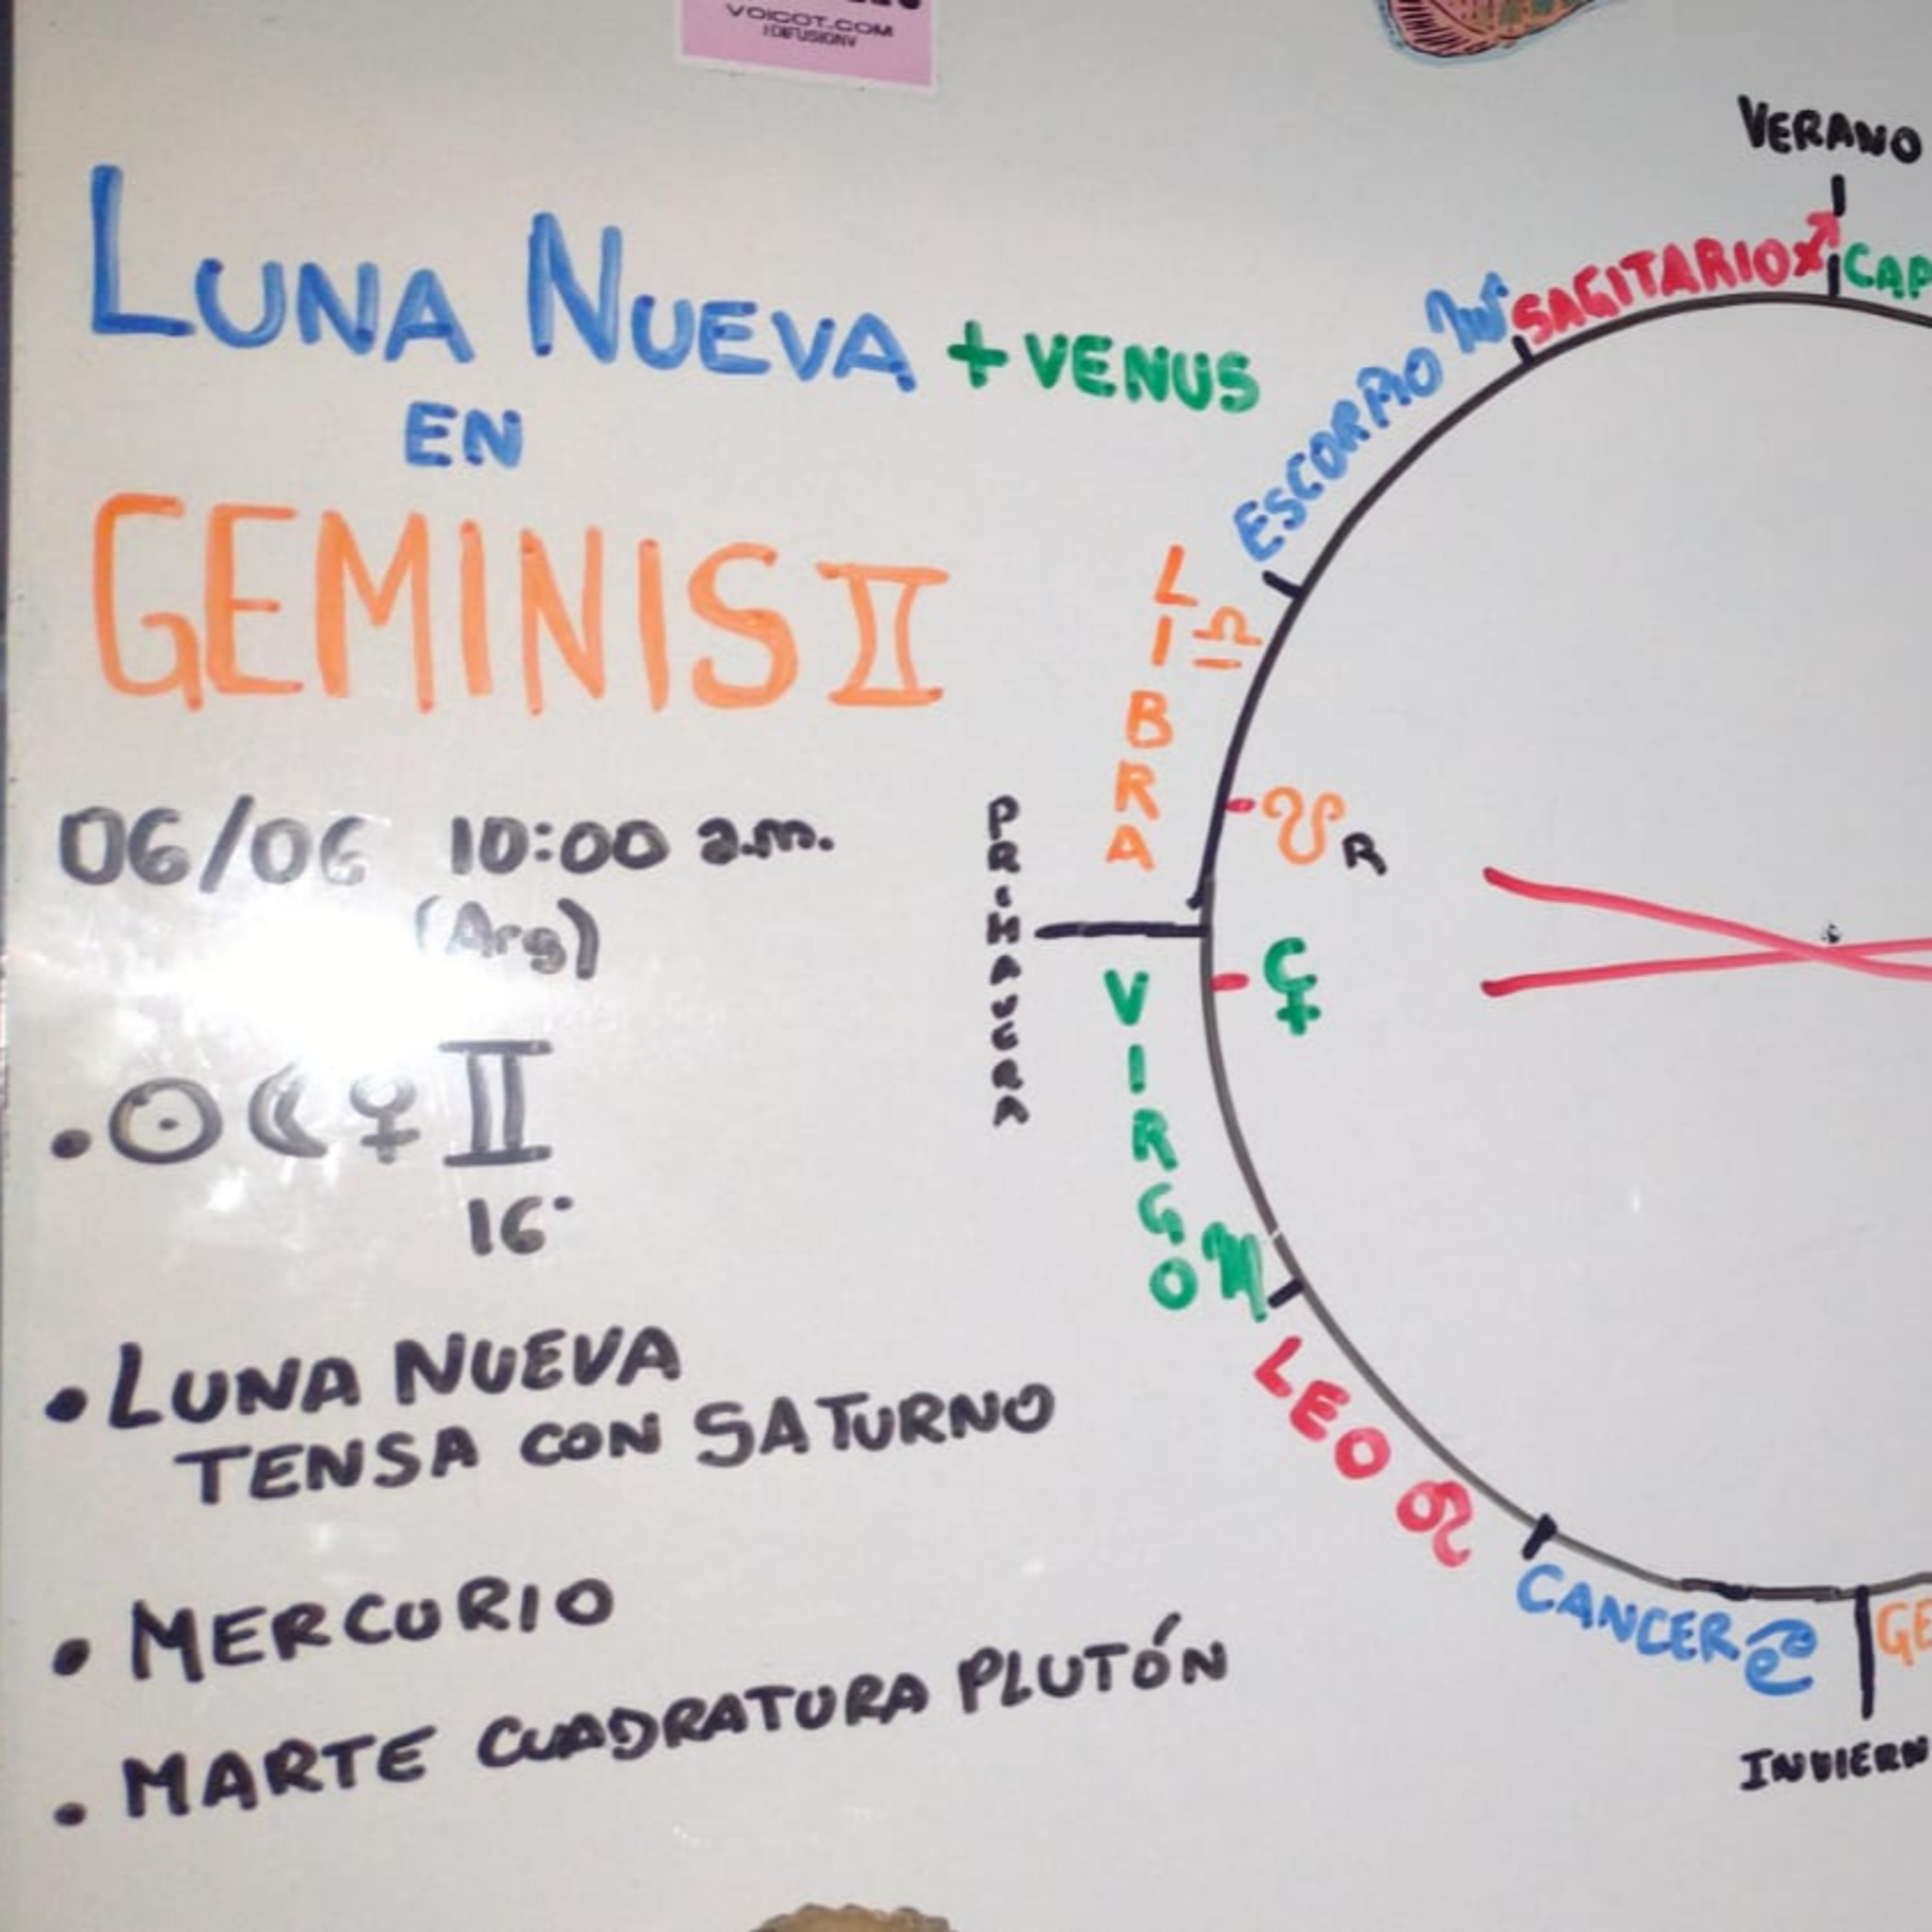 VOICOT.COM
#DIFUSIONV
LUNA NUEVA + VENUS
EN
GEMINIS ♊
06/06 10:00 a.m.
(Arg)
• ☉ ☾ ♀ ♊
16°
• LUNA NUEVA
TENSA CON SATURNO
• MERCURIO
• MARTE CUADRATURA PLUTÓN
VERANO
CAP
SAGITARIO ♐
ESCORPIO ♏
LIBRA ♎
PRIMAVERA
☋ R
VIRGO ♍
LEO ♌
CANCER ♋
GE
INVIERN